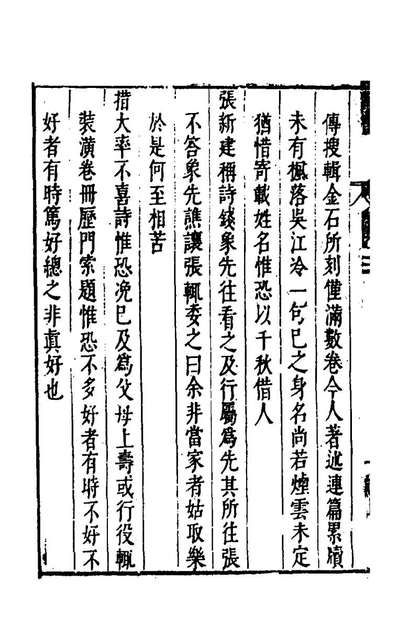 傳搜輯金石所刻僅滿數卷今人著述連篇累牘
未有楓落吳江冷一句已之身名尚若煙雲未定
猶惜寄載姓名惟恐以千秋借人
張新建稱詩錢象先往看之及行屬爲先其所往張
不答象先譙讓張輒委之曰余非當家者姑取樂
於是何至相苦
措大率不喜詩惟恐凂已及爲父母上壽或行役輒
裝潢卷冊歷門索題惟恐不多好者有時不好不
好者有時篤好總之非眞好也